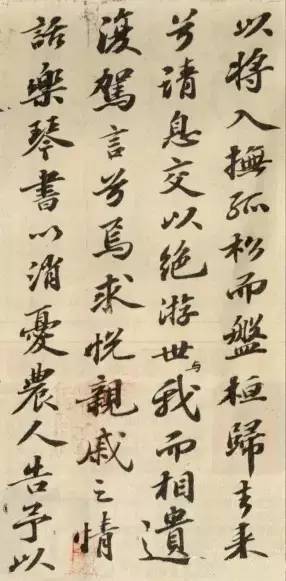 以將入撫孤松而盤桓歸去来
兮請息交以絶游世与我而相遺
復駕言兮焉求悅親戚之情
話樂琴書以消憂農人告予以